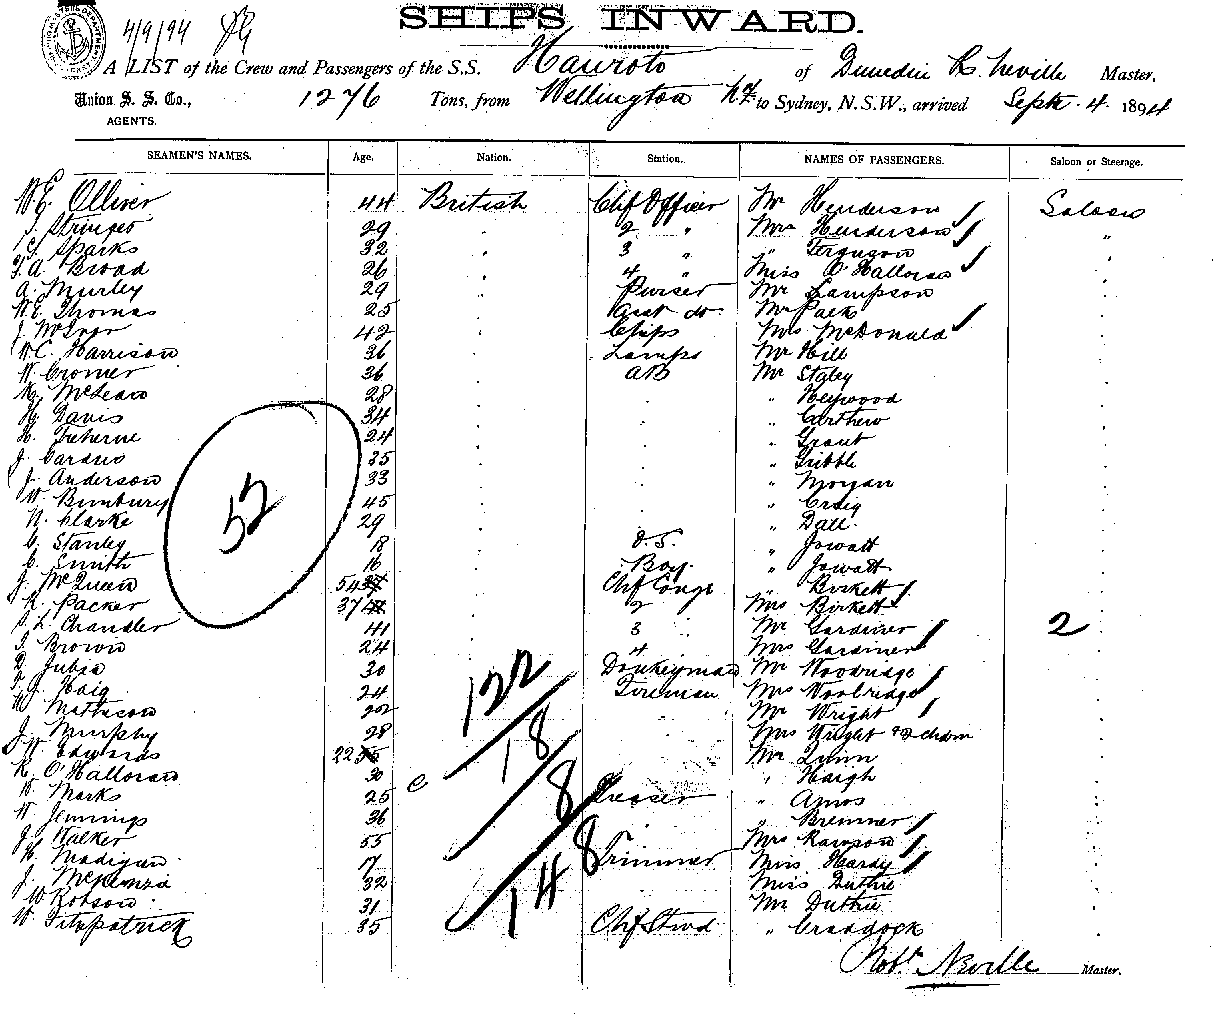 SHIPS INWARD.
4/9/94
A LIST of the Crew and Passengers of the S.S. Hauroto of Dunedin R. Neville Master,
Union S. S. Co., 1276 Tons, from Wellington NZ to Sydney, N.S.W., arrived Sept. 4. 1894
AGENTS.
SEAMEN'S NAMES. Age. Nation. Station. NAMES OF PASSENGERS. Saloon or Steerage.
W.E. Olliver 44 British Chf Officer Mr Henderson Saloon
J. Stringer 29 " 2 " Mrs Henderson "
Sparks 32 " 3 " " Ferguson
A. Broad 26 " 4 " Miss O'Halloran
A. Murley 29 Purser Mr Lampson
W.E. Thomas 25 Asst do. Mr Pack
J. McIvor 42 Chips Mrs McDonald
W.C. Harrison 36 Lamps Mr Hill
W. Cromer 36 AB Mr Staley
McLean 28 " Heywood
H. Davis 34 " Carthew
Treherne 24 " Grant
J. Carano 35 " Gribble
J. Anderson 33 " Morgan
W. Bunbury 45 " Craig
N. Clarke 29 " Dall
C. Stanley 18 O.S. " Jowatt
C. Smith 16 Boy. " Jowatt
J. McQueen 54 Chf Engr " Birkett
Packer 37 2 " Mrs Birkett
L. Chandler 41 3 " Mr Gardiner 2
Brown 24 4 Mrs Gardiner
Jubea 30 Donkeyman Mr Woodridge
J. Haig 24 Fireman Mrs Woobridge
Matheson 22 Mr Wright
J. Murphy 28 Mrs Wright
W. Edwards 22 Mr Quinn
O'Halloran 30 " Haigh
Marks 25 Greaser " Amos
W. Jennings 36 " Bremner
J. Walker 55 Mrs Rawson
Madigan 17 Trimmer Miss Hardy
J. McKenzie 32 Miss Duthie
W. Robson 31 Mr Duthie
W. Fitzpatrick 35 Chf Stwd " Craddock
52
122
18
8
148
Robt Neville Master.